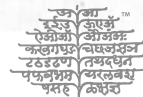 अ आ ™
इईउ
ऐओऔ अंअः
कखगघङ चछजझञ
टठडढण तथदधन
पफबभम यरलवश
षसह ळक्षज्ञ